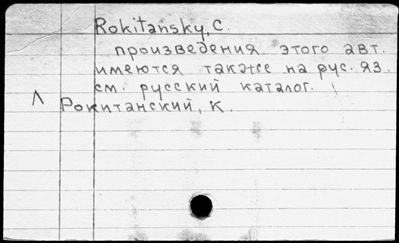 Rokitansky, C.
произведения этого авт.
имеются также на рус. яз.
см. русский каталог.
Рокитанский, К.